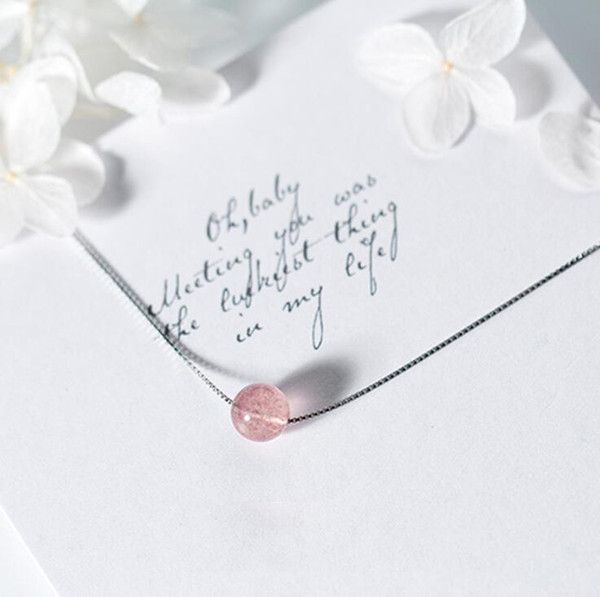 Oh, baby
Meeting you was
the luckiest thing
in my life